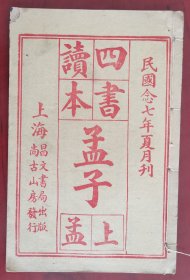 民國念七年夏月刊
四書
讀本
孟子
上
孟
上海
昌文書局出版
尚古山房發行